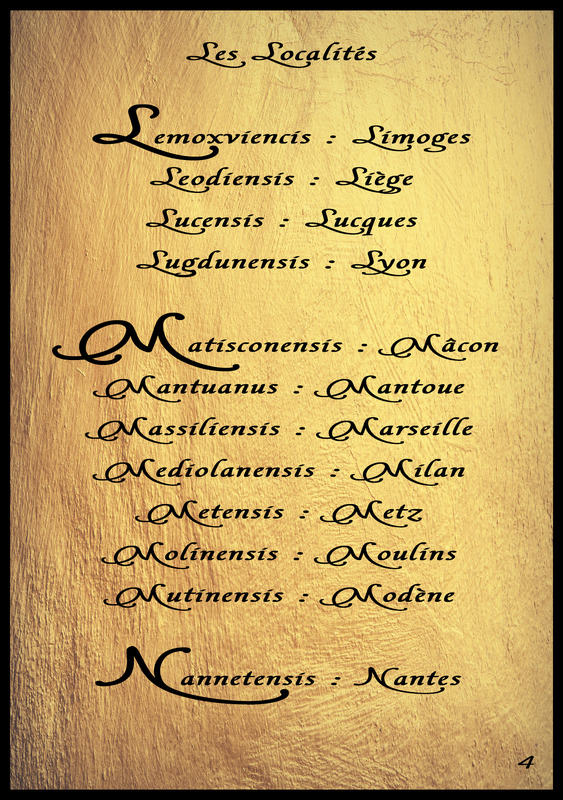 Les Localités
Lemoxviencis : Limoges
Leodiensis : Liège
Lucensis : Lucques
Lugdunensis : Lyon
Matisconensis : Mâcon
Mantuanus : Mantoue
Massiliensis : Marseille
Mediolanensis : Milan
Metensis : Metz
Molinensis : Moulins
Mutinensis : Modène
Nannetensis : Nantes
4